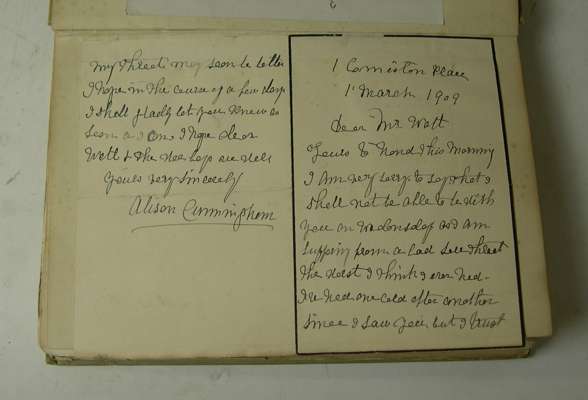 1 Comiston Place
1st March 1909
Dear Mr Watt
Yours to hand this Morning
I am very sorry to say that I
shall not be able to be with
you on Wednesday as I am
suffering from a bad sore throat
the worst I think I ever had.
I've had one cold after another
since I saw you but I trust
my throat may soon be better
I hope in the course of a few days
I shall gladly let you know as
soon as I can I hope dear
Watt & the boys are well
yours very sincerely
Alison Cunningham